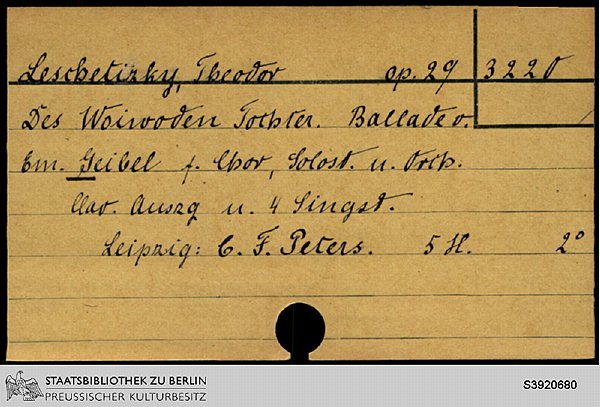 Leschetizky, Theodor op. 29 3220
Des Woiwoden Tochter. Ballade v.
Em. Geibel f. Chor, Solost. u. Orch.
Clav. Auszg u. 4 Singst.
Leipzig: C. F. Peters. 5 H. 2°
STAATSBIBLIOTHEK ZU BERLIN
PREUSSISCHER KULTURBESITZ
S3920680